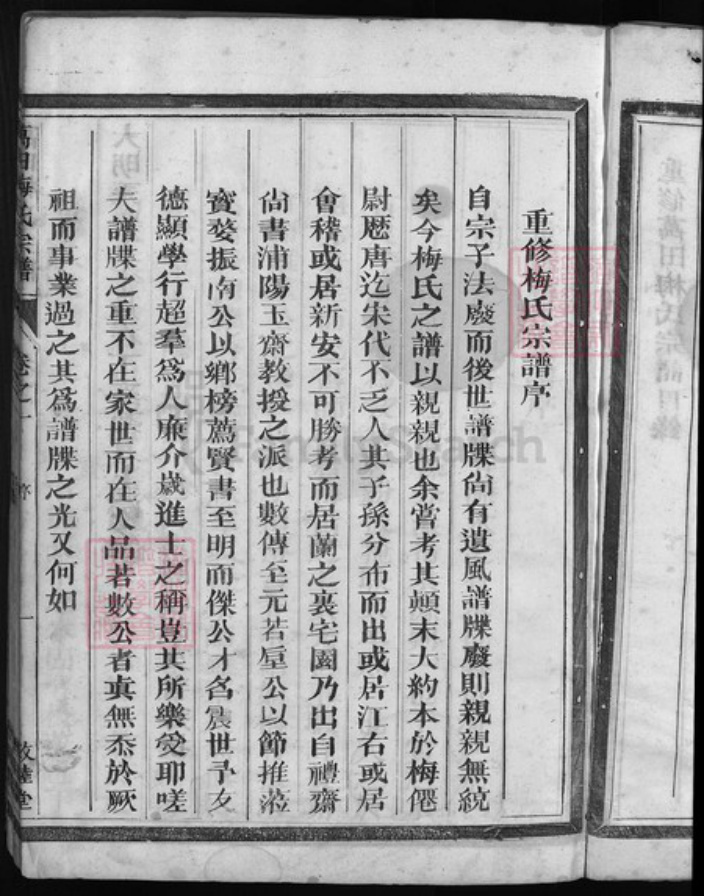 重修梅氏宗譜序
自宗子法廢而後世譜牒尙有遺風譜牒廢則親親無統
矣今梅氏之譜以親親也余嘗考其顚末大約本於梅僊
尉歷唐迄宋代不乏人其子孫分布而出或居江右或居
會稽或居新安不可勝考而居蘭之裏宅園乃出自禮齋
尙書浦陽玉齋教授之派也數傳至元若垕公以節推涖
寳婺振南公以鄉榜薦賢書至明而傑公才名震世予友
德顯學行超羣爲人亷介嵗進士之稱豈其所樂受耶嗟
夫譜牒之重不在家世而在人品若數公者眞無忝於厥
祖而事業過之其爲譜牒之光又何如
萬田梅氏宗譜
卷之一
序
一
敦睦堂
重修萬田梅氏宗譜目錄